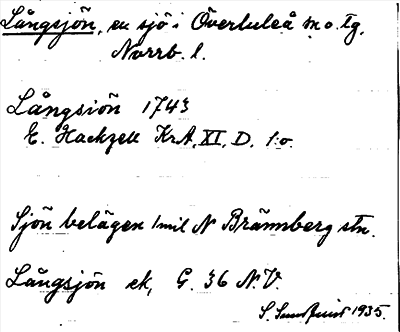 Långsjön, en sjö i Överluleå m o. tg.
Norrb. l.
Långsiön 1743
E. Hackzell KrA, XI, D. 1:o.
Sjön belägen 1 mil N Brännberg stn.
Långsjön ek, G. 36 N.V.
S. Sundquist 1935.